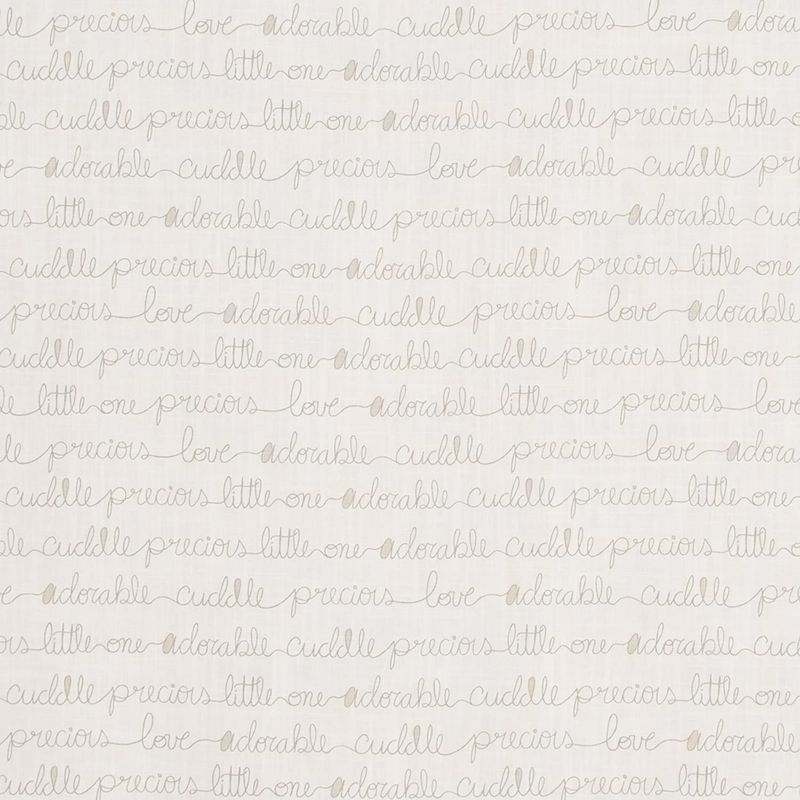 lle precious love adorable cuddle precious love adora
cuddle precious little one adorable cuddle precious little one
ble cuddle precious little one adorable cuddle precious little o
e adorable cuddle precious love adorable cuddle pre
ous little one adorable cuddle precious little one adorable cud
cuddle precious little one adorable cuddle precious little one
precious love adorable cuddle precious love adorable
cuddle precious little one adorable cuddle precious little one
le little one precious love adorable little one precious love
lle precious love adorable cuddle precious love adora
cuddle precious little one adorable cuddle precious little one
ble cuddle precious little one adorable cuddle precious little o
e adorable cuddle precious love adorable cuddle pre
ous little one adorable cuddle precious little one adorable cud
cuddle precious little one adorable cuddle precious little one
precious love adorable cuddle precious love adorable
cuddle precious little one adorable cuddle precious little one